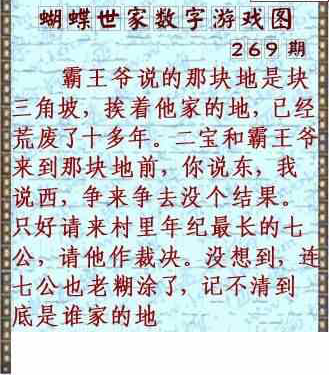 蝴蝶世家数字游戏图
269期
霸王爷说的那块地是块
三角坡，挨着他家的地，已经
荒废了十多年。二宝和霸王爷
来到那块地前，你说东，我
说西，争来争去没个结果。
只好请来村里年纪最长的七
公，请他作裁决。没想到，连
七公也老糊涂了，记不清到
底是谁家的地